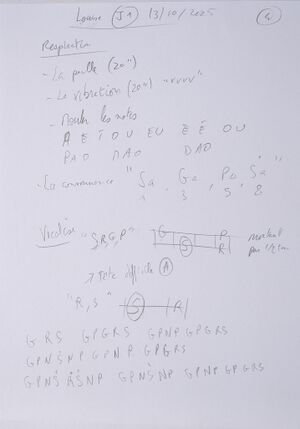 Louise J1 13/10/2025 4
Respiration
- La paille (20")
- Le vibration (20") "vvvv"
- Monter les notes
A E I O U EU E É OU
PAO MAO DAO
- La consonance "Sa, Ga, Pa, Ṡa"
1 3 5 8
"S, R, G, P" G P
S R
montant par 1/2 ton
→ Note difficile A
"R, S" S R
G R S G P G R S G P N P G P G R S
G P N Ṡ N P G P N P G P G R S
G P N Ṡ Ṙ Ṡ N P G P N Ṡ N P G P N P G P G R S